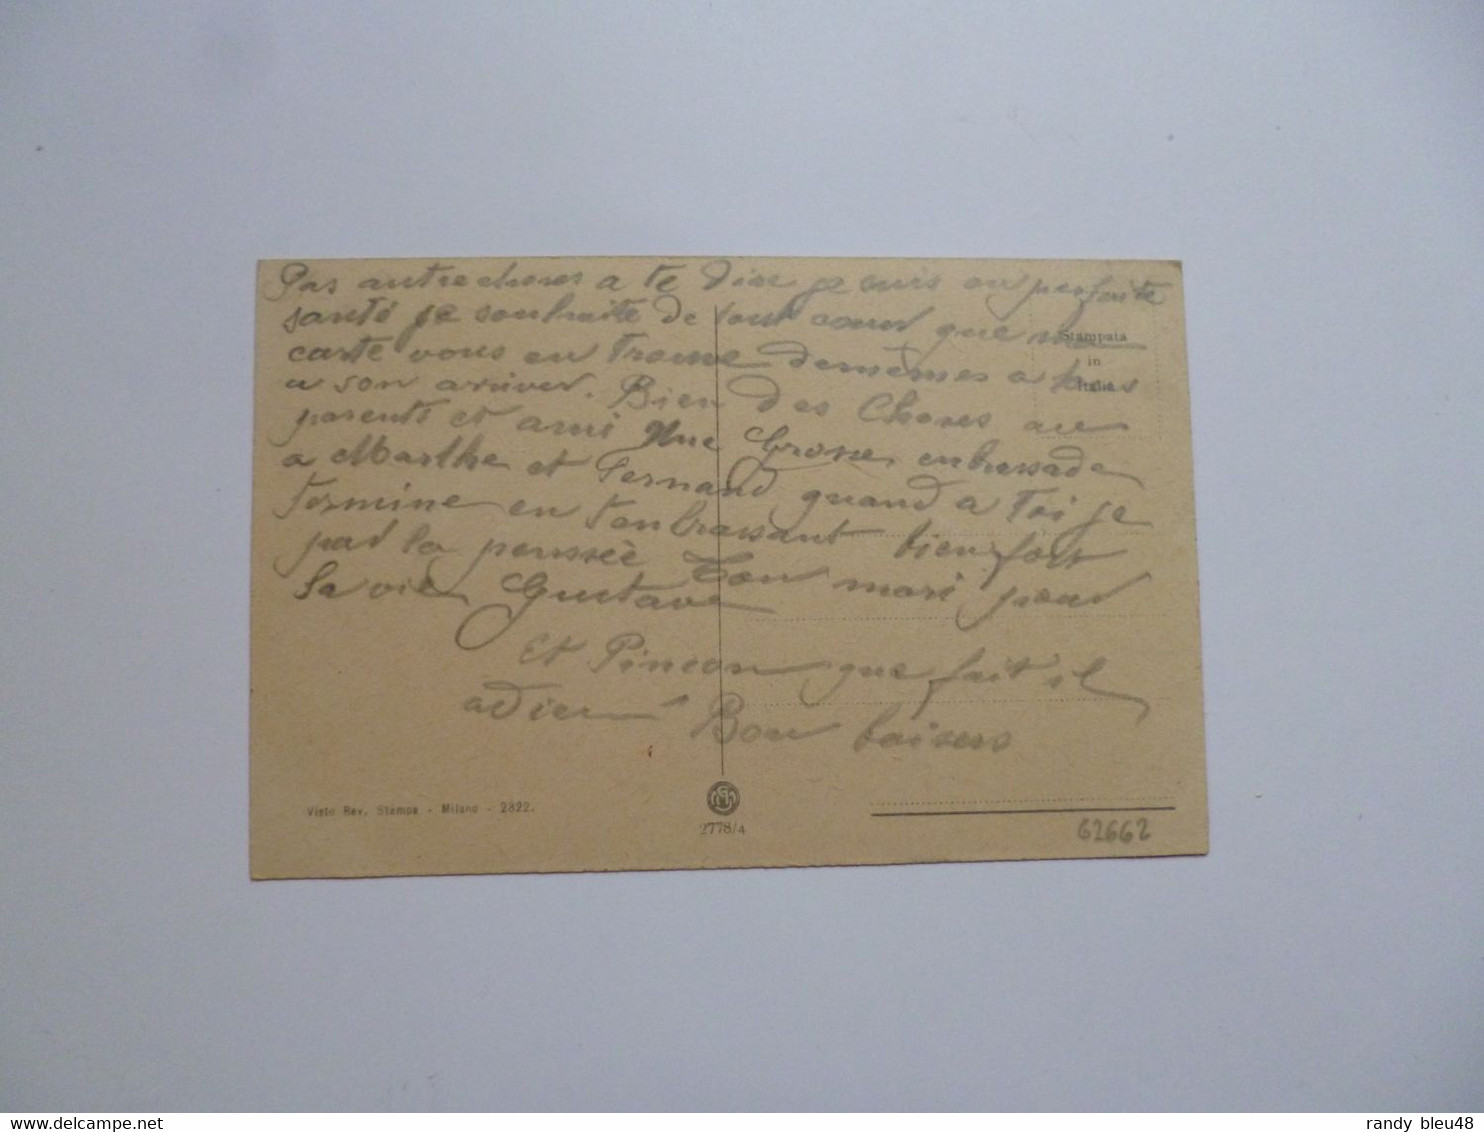 Pas autre choses a te dire je suis en parfaite
santé je souhaite de tout coeur que ma
carte vous en trouve demêmes a tous
a son arriver. Bien des Choses au
parents et ami Une Grosse enbrassade
a Marthe et Fernand quand a Toi je
termine en t'enbrassant bien fort
par la penssèe Ton mari pour
la vie Gustave
Et Pincon que fait il
adieu Bon baisers
Stampata
in
Italia
Visto Rev. Stampa - Milano - 2822.
2778/4
62662
www.delcampe.net
randy_bleu48